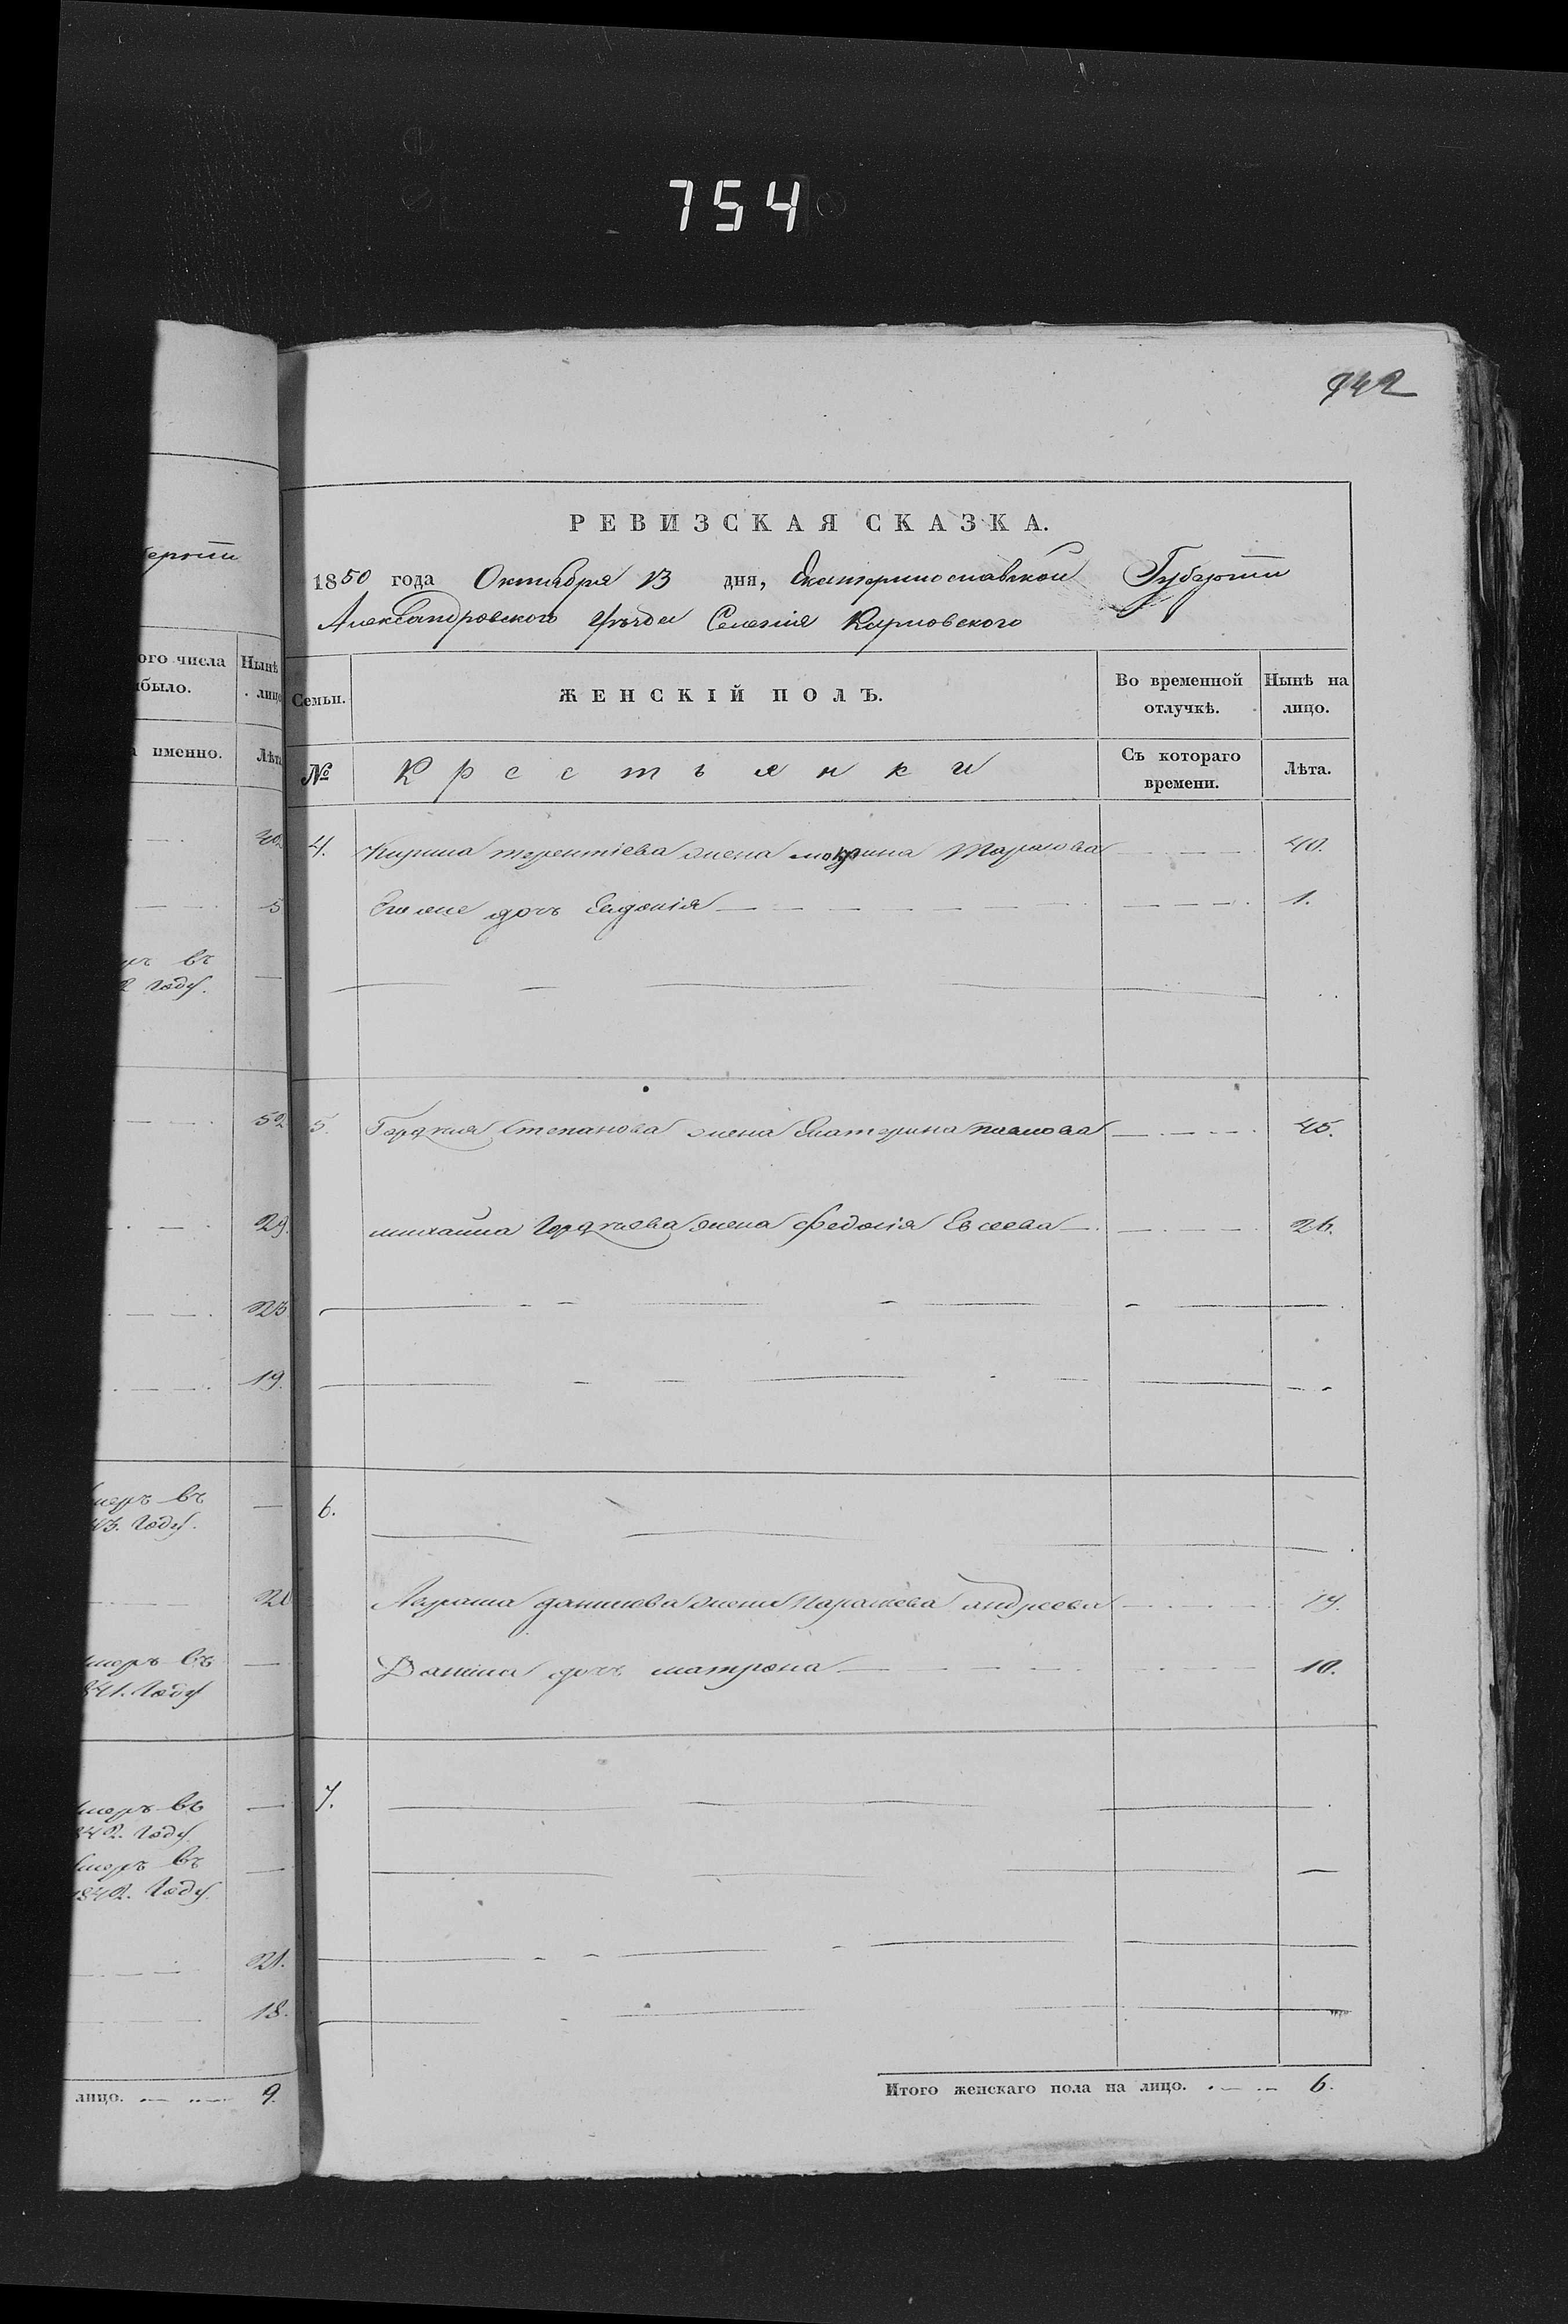 754
942
РЕВИЗСКАЯ СКАЗКА.
1850 года Октября 13 дня, Екатеринославской Губернiи
Александровского Уѣзда Селенiя Кириловского
Семьи.
ЖЕНСКІЙ ПОЛЪ.
Во временной отлучкѣ.
Нынѣ на лицо.
№
Крестьянки
Съ котораго времени.
Лѣта.
4. Кирила терентiева жена мокрина Тарасова 40.
Его же дочь Евдокiя 1.
5. Гордѣя Степанова жена Екатерина павлова 45.
михаила Гордѣева жена Федосiя Евсеева 26.
6.
данилова жена Параскева андреева 19.
Данила дочь матрона 10.
7.
Итого женскаго пола на лицо. 6.
ого числа
было.
Нынѣ
лицо
а именно.
Лѣта
5
въ
году.
52
29.
23
19.
умеръ въ
43. году.
умеръ въ
841. году
умеръ въ
842. году
умеръ въ
1842. году.
21.
18.
лицо. 9.